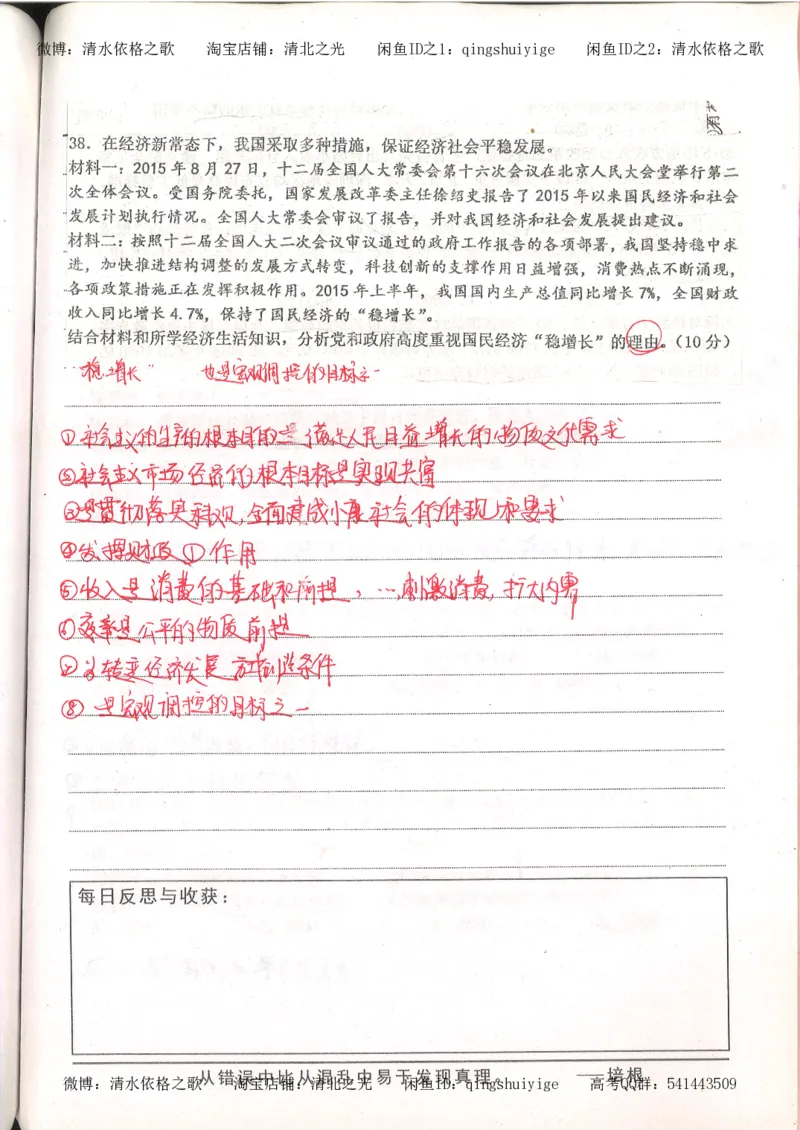 微博：清水依格之歌 淘宝店铺：清北之光 闲鱼ID之1：qingshuiyige 闲鱼ID之2：清水依格之歌
38．在经济新常态下，我国采取多种措施，保证经济社会平稳发展。
材料一：2015 年 8 月 27 日，十二届全国人大常委会第十六次会议在北京人民大会堂举行第二
次全体会议。受国务院委托，国家发展改革委主任徐绍史报告了 2015 年以来国民经济和社会
发展计划执行情况。全国人大常委会审议了报告，并对我国经济和社会发展提出建议。
材料二：按照十二届全国人大二次会议审议通过的政府工作报告的各项部署，我国坚持稳中求
进，加快推进结构调整的发展方式转变，科技创新的支撑作用日益增强，消费热点不断涌现，
各项政策措施正在发挥积极作用。2015 年上半年，我国国内生产总值同比增长 7%，全国财政
收入同比增长 4.7%，保持了国民经济的“稳增长”。
结合材料和所学经济生活知识，分析党和政府高度重视国民经济“稳增长”的理由。（10 分）
“稳增长” 也是宏观调控的目标之一
①社会主义的生产的根本目的是满足人民日益增长的物质文化需求
②社会主义市场经济的根本目标是实现共富
③是贯彻落实科观，全面建成小康社会的体现和要求
④发挥财政①作用
⑤收入是消费的基础和前提，…，刺激消费，扩大内需
⑥效率是公平的物质前提
⑦为转变经济发展方式创造条件
⑧是宏观调控的目标之一
每日反思与收获：
从错误中比从混乱中易于发现真理。 ——培根
微博：清水依格之歌 淘宝店铺：清北之光 闲鱼ID：qingshuiyige 高考QQ群：541443509